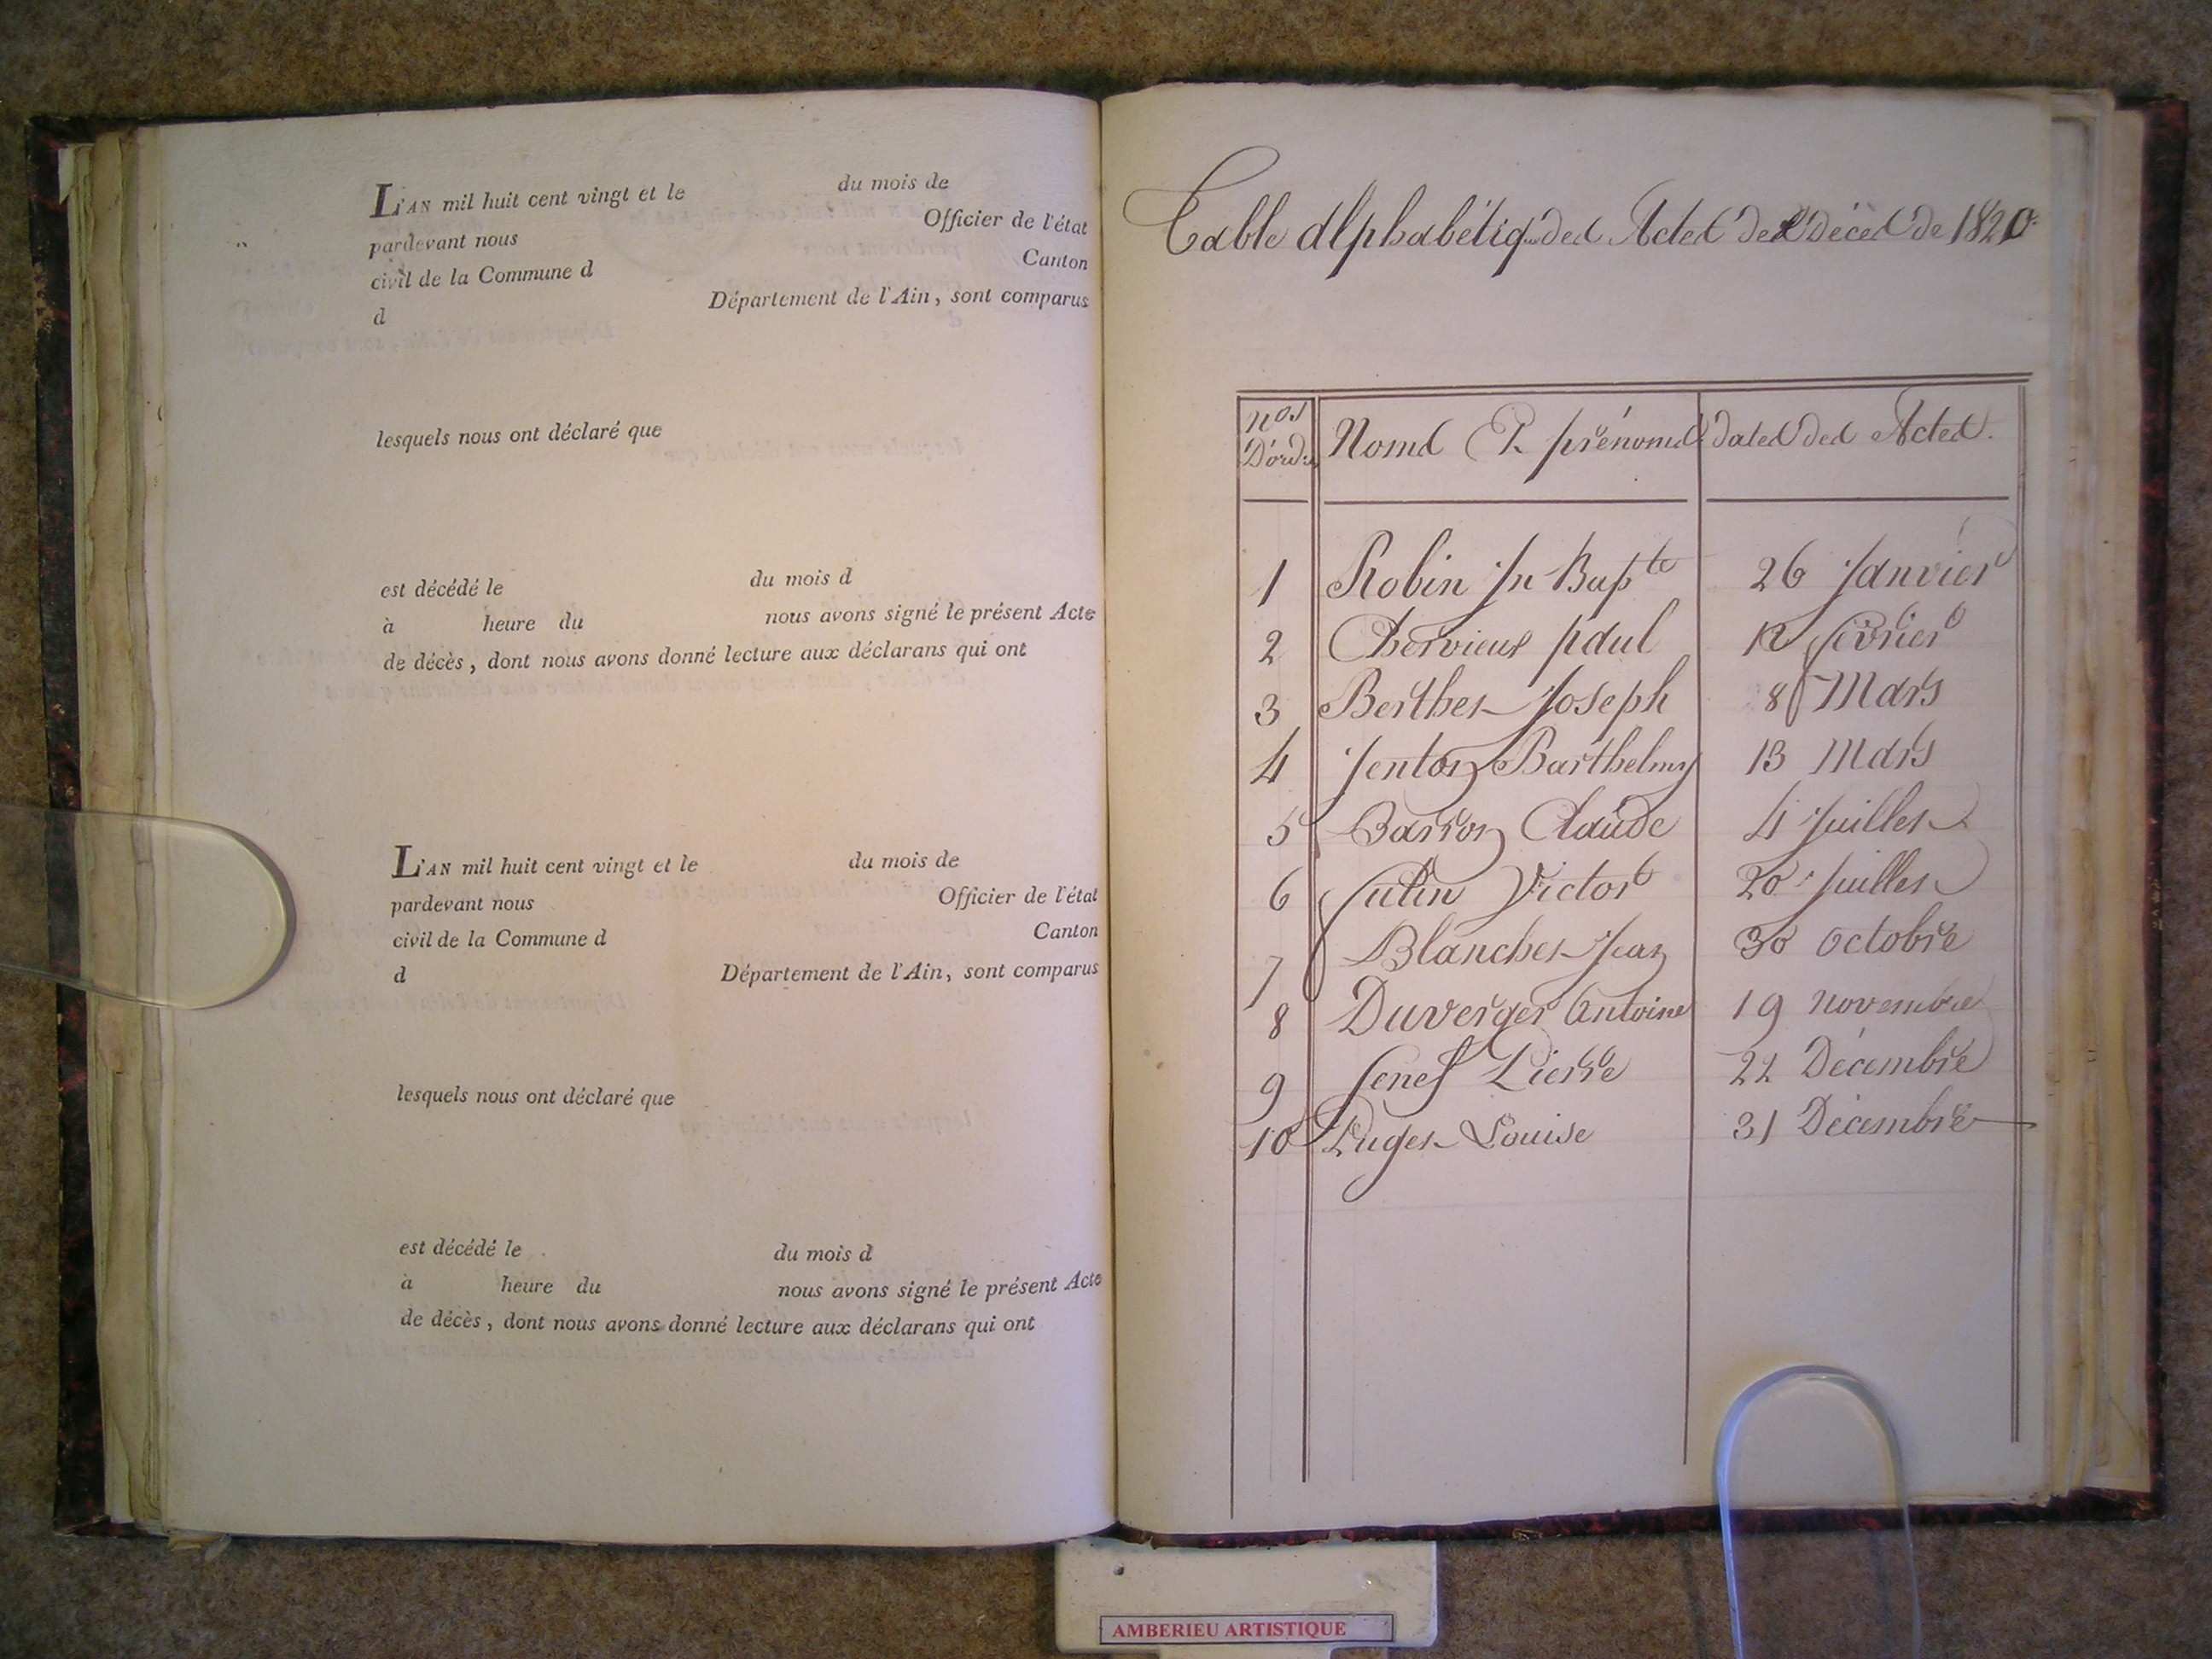 L'AN mil huit cent vingt et le du mois de
pardevant nous Officier de l'état
civil de la Commune d Canton
d Département de l'Ain, sont comparus
lesquels nous ont déclaré que
est décédé le du mois d
à heure du nous avons signé le présent Acte
de décès, dont nous avons donné lecture aux déclarans qui ont
L'AN mil huit cent vingt et le du mois de
pardevant nous Officier de l'état
civil de la Commune d Canton
d Département de l'Ain, sont comparus
lesquels nous ont déclaré que
est décédé le du mois d
à heure du nous avons signé le présent Acte
de décès, dont nous avons donné lecture aux déclarans qui ont
Table Alphabétiq. des Actes de Décès de 1820.
Nos D'ord. Noms & prénoms dates des Actes.
1 Robin Jn Bapte 26 Janvier
2 Chervieux paul 12 février
3 Berthet Joseph 8 Mars
4 Jenton Barthelmy 13 Mars
5 Barron Claude 4 Juillet
6 Julin Victor 20 Juillet
7 Blanchet Jean 30 Octobre
8 Duverger Antoine 19 Novembre
9 Pierre 22 Décembre
10 Puget Louise 31 Décembre
AMBERIEU ARTISTIQUE